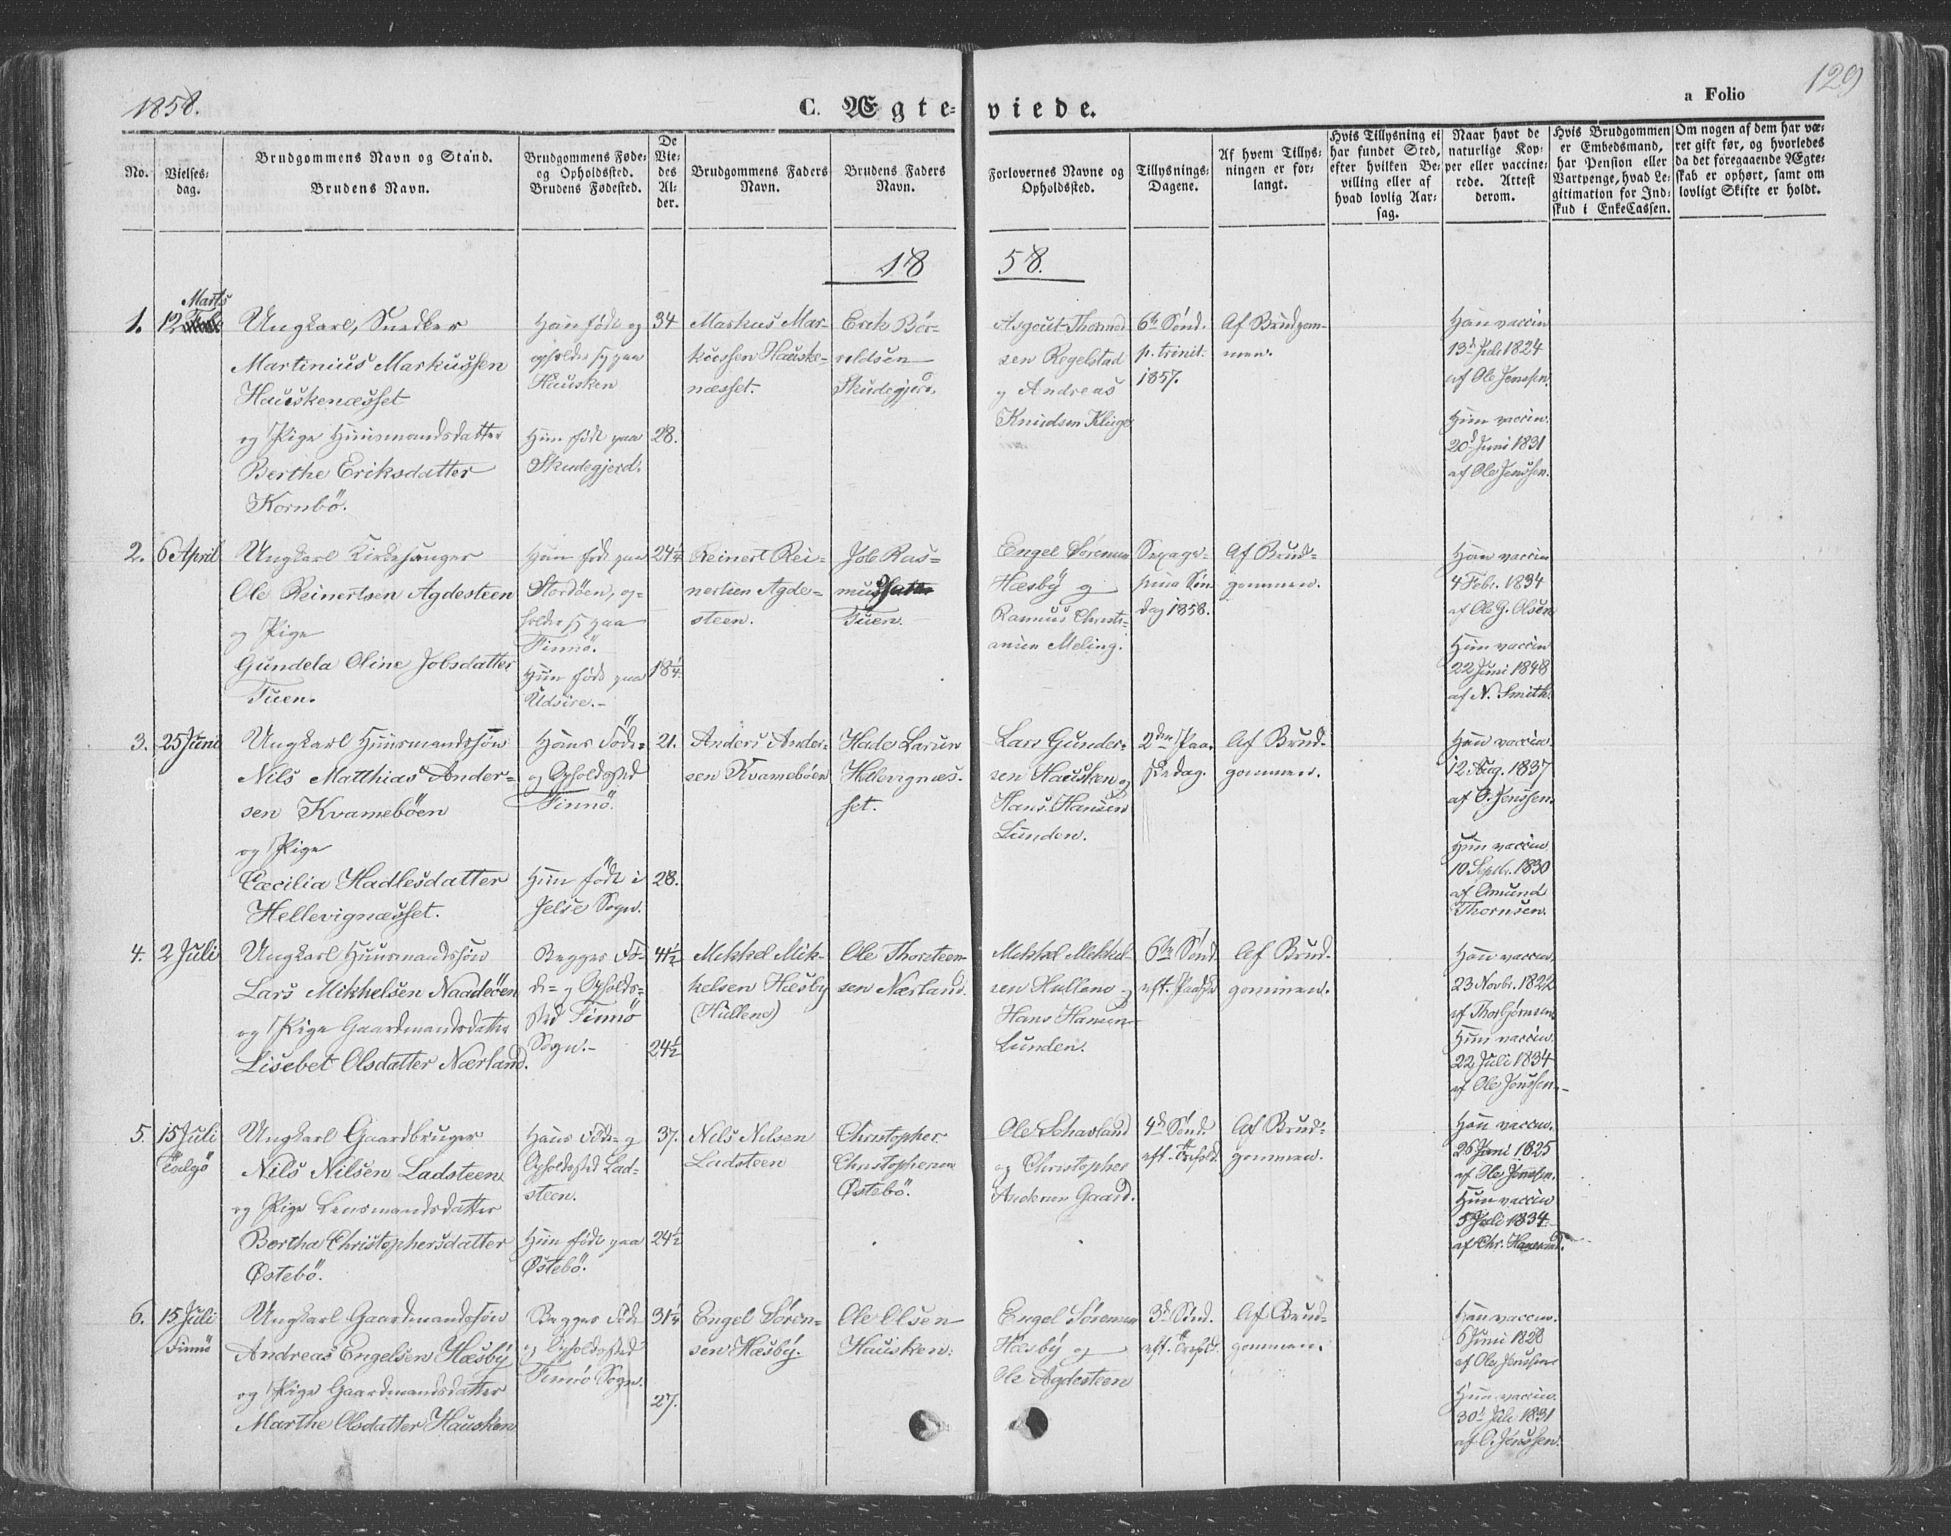 1858.
C. Ægte-
viede.
a Folio
129
No.
Vielses-
dag.
Brudgommens Navn og Stand.
Brudens Navn.
Brudgommens Føde-
og Opholdssted.
Brudens Fødested.
De
Vie-
des
Al-
der.
Brudgommens Faders
Navn.
Brudens Faders
Navn.
Forlovernes Navne og
Opholdssted.
Tillysnings-
Dagene.
Af hvem Tillys-
ningen er for-
langt.
Hvis Tillysning ei
har fundet Sted,
efter hvilken Be-
villing eller af
hvad lovlig Aar-
sag.
Naar havt de
naturlige Kop-
per eller vaccine-
rede. Attest
derom.
Hvis Brudgommen
er Embedsmand,
har Pension eller
Vartpenge, hvad Le-
gitimation for Ind-
skud i EnkeCassen.
Om nogen af dem har væ-
ret gift før, og hvorledes
da det foregaaende Ægte-
skab er ophørt, samt om
lovligt Skifte er holdt.
18
58.
1.
Marts
12
Ungkarl, Snedker
Martinius Markussen
Hauskenæsset
og Pige Huusmandsdatter
Berthe Eriksdatter
Kornbö.
Han født og
opholder sig paa
Hausken
Hun født paa
Skudegjerd.
34
28.
Markus Mar-
kussen Hauske-
næsset.
Erik Bör-
reldsen
Skudegjerd.
Asgout Thormod
sen Regelstad
og Andreas
Knudsen Kluge
6te Sønd.
p. trinit.
1857.
Af Brudgom-
men.
Han vaccin
13d Juli 1824
af Ole Jenssen.
Hun vaccin.
20d Juni 1831
af Ole Jenssen.
2.
6 April
Ungkarl Kirkesanger
Ole Reinertsen Agdesteen
og Pige
Gundela Oline Jobsdatter
Tuen.
Han født paa
Stordöen, op-
holder sig paa
Finnö.
Hun født paa
Udsire.-
24¼
18¼
Reinert Rei-
nertsen Agde-
steen.
Job Ras-
mus
Tuen.
Engel Sørensen
Hæsby og
Rasmus Christi-
ansen Meling.
Sexage-
sima Søn-
dag 1858.
Af Brud-
gommen.
Han vaccin
4 Febr. 1834
af Ole G. Olsen
Hun vaccin
22 Juni 1848
af N. Smith.
3.
25 Juni
Ungkarl Huusmandssøn
Nils Matthias Ander-
sen Kvameböen
og Pige
Cæcilia Hadlesdatter
Hellevignæsset.
Hans Føde-
og Opholdssted
Finnö.
Hun født i
Jelse Sogn.
21.
28.
Anders Ander-
sen Kvamebøen
Hadle Larsen
Hellevignæs-
set.
Lars Gunder-
sen Hausken og
Hans Hansen
Lunden.
2den Paa-
skedag.
Af Brud-
gommen.
Han vaccin.
12 Aug. 1837
af O. Jenssen.
Hun vaccin
10 Septr. 1830
af Amund
Thornsen.
4.
2 Juli
Ungkarl Huusmandssøn
Lars Mikkelsen Naadeöen
og Pige Gaardmandsdatter
Lisebet Olsdatter Nærland.
Begges Fö-
de- og Opholds-
sted Finnö
Sogn.-
41½
24½
Mikkel Mik-
kelsen Hæsby
(Kullens)
Ole Thorsteen-
sen Nærland.
Mikkel Mekkel-
sen Hullene og
Hans Hansen
Lunden.
6te Sønd
eft. Paaske
Af Brud-
gommen.
Han vaccin.
23 Novbr. 1822
Hun vaccin.
22 Juli 1834
af Ole Jenssen.-
5.
15 Juli
Talgö
Ungkarl Gaardbruger
Nils Nilsen Ladsteen
og Pige Lensmandsdatter
Bertha Christophersdatter
Østebö.
Hans Føde- og
Opholdssted Lad-
steen.
Hun født paa
Østebö.
37.
24½
Nils Nilsen
Ladsteen
Christopher
Christophersen
Østebö.
Ole Schavland
og Christopher
Andersen Gaard.
4de Sønd.
eft. Trefold.
Af Brud-
gommen.
Han vaccin.
26 Juni 1825
af Ole Jenssen.
Hun vaccin
5 Juli 1834
af Chr.
6.
15 Juli
Finnö
Ungkarl Gaardmandssøn
Andreas Engelsen Hæsby
og Pige Gaardmandsdatter
Marthe Olsdatter Hausken
Begges Føde
og Opholdssted
Finnö Sogn.
31¼
27.
Engel Søren-
sen Hæsby.
Ole Olsen
Hausken.
Engel Sørensen
Hæsby og
Ole Agdesteen
3de Sønd.
eft. Trefold.
Af Brud-
gommen.
Han vaccin.
6 Juni 1828
af Ole Jenssen
Hun vaccin.
30d Juli 1831
af O. Jenssen.